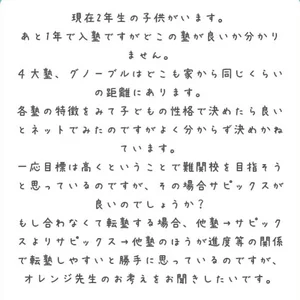 現在2年生の子供がいます。
あと1年で入塾ですがどこの塾が良いか分かり
ません。
４大塾、グノーブルはどこも家から同じくらい
の距離にあります。
各塾の特徴をみて子どもの性格で決めたら良い
とネットでみたのですがよく分からず決めかね
ています。
一応目標は高くということで難関校を目指そう
と思っているのですが、その場合サピックスが
良いのでしょうか？
もし合わなくて転塾する場合、他塾→サピック
スよりサピックス→他塾のほうが進度等の関係
で転塾しやすいと勝手に思っているのですが、
オレンジ先生のお考えをお聞きしたいです。